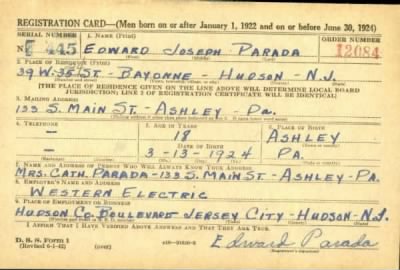 REGISTRATION CARD—(Men born on or after January 1, 1922 and on or before June 30, 1924)
SERIAL NUMBER 1. NAME (Print) ORDER NUMBER
445 EDWARD JOSEPH PARADA 12084
(First) (Middle) (Last)
2. PLACE OF RESIDENCE (Print)
39 W. 35 ST. - BAYONNE - HUDSON - N.J.
[THE PLACE OF RESIDENCE GIVEN ON THE LINE ABOVE WILL DETERMINE LOCAL BOARD
JURISDICTION; LINE 2 OF REGISTRATION CERTIFICATE WILL BE IDENTICAL]
3. MAILING ADDRESS
133 S. MAIN ST. - ASHLEY - Pa.
4. TELEPHONE 5. AGE IN YEARS 6. PLACE OF BIRTH
— 18 ASHLEY
DATE OF BIRTH
— 3-13-1924 PA.
7. NAME AND ADDRESS OF PERSON WHO WILL ALWAYS KNOW YOUR ADDRESS
MRS. CATH. PARADA - 133 S. MAIN ST - ASHLEY - PA.
8. EMPLOYER'S NAME AND ADDRESS
WESTERN ELECTRIC
9. PLACE OF EMPLOYMENT OR BUSINESS
HUDSON CO. BOULEVARD JERSEY CITY - HUDSON - N.J.
I AFFIRM THAT I HAVE VERIFIED ABOVE ANSWERS AND THAT THEY ARE TRUE.
D. S. S. Form 1
(Revised 6-1-42) Edward Parada
(Registrant's signature)